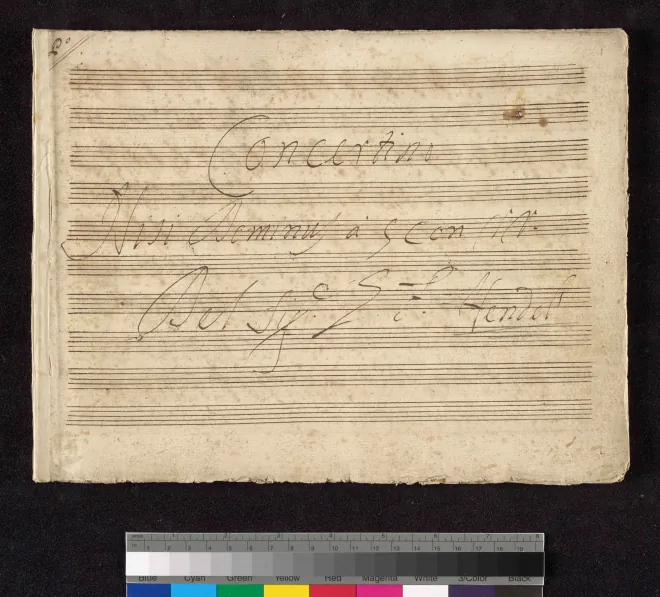 Concertino
Nisi Dominus à 5 con
Del Sig.r G. F. Hendel
Blue Cyan Green Yellow Red Magenta White 3/Color Black